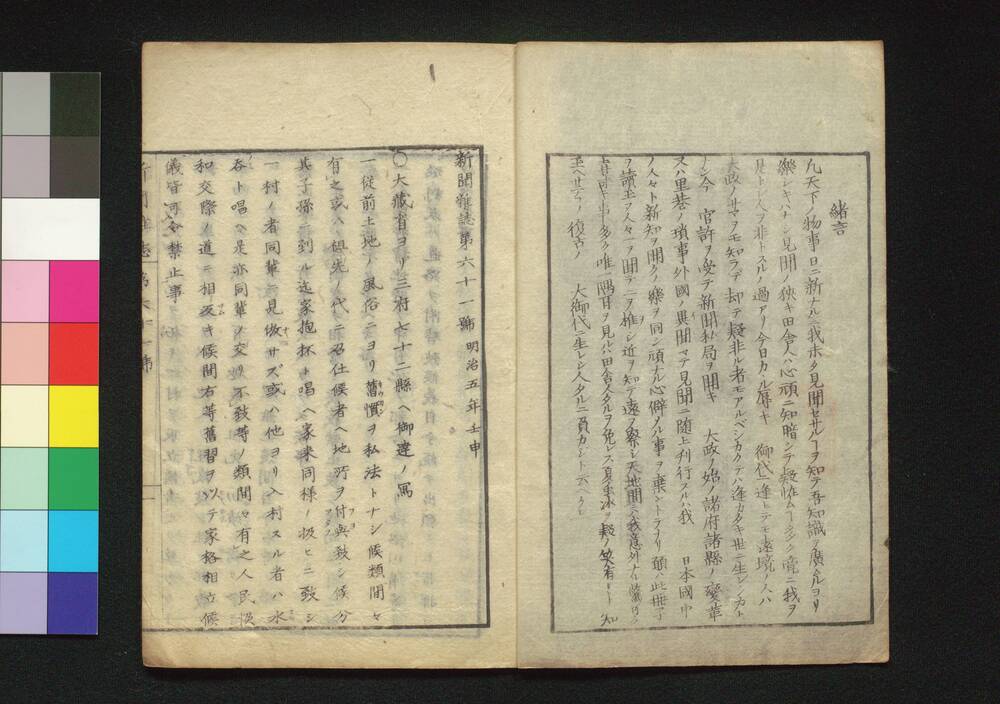 緒言
凡天下ノ物事日ニ新ナルニ我未タ見聞セサルヿヲ知テ吾知識ヲ廣ムルヨリ
樂シキハナシ見聞ノ狹キ田舎人ハ心頑ニ知暗シテ疑怪ムヿ多ク竟ニ我ヲ
是トシ人ヲ非トスルノ過アリ今日カヽル辱キ 御代ニ逢ヒテモ遠境ノ人ハ
大政ノサマヲモ知ラテ却テ疑非ル者モアルベシカクテハ逢カタキ世ニ生レシカヒ
ナシ今 官許ヲ受テ新聞私局ヲ開キ 大政ノ始メ諸府諸縣ノ變革
又ハ里巷ノ瑣事外國ノ異聞マテ見聞ニ随上刊行スルハ我 日本國中
ノ人々ト新知ヲ開クノ樂ヲ同シ頑ナル心僻タル事ヲ棄ントテナリ願ハ此冊子
ヲ讀ム人々一ヲ聞テ二ヲ推シ近ヲ知テ遠ヲ察シ天地間
唯一隅耳ヲ見ルハ田舎人タルヲ免レス夏虫冰ヲ疑ノ笑有ヘシ 知
復古ノ 大御代ニ生レシ人タルニ負カントス
新聞雜誌第六十一號 明治五年壬申
〇大藏省ヨリ三府七十二縣ヘ御達ノ寫
一從前土地ノ風俗ニヨリ舊慣ヲ私法トナシ候類間々
有之或ハ祖先ノ代ニ召仕候者ヘ地所ヲ付與致シ候分
其子孫ニ到ル迄家抱抔ト唱ヘ家来同様ノ扱ヒニ致シ
一村ノ者同輩ニ見做サズ或ハ他ヨリ入村スル者ハ水
呑ト唱ヘ是亦同輩ノ交リ不致等ノ類間々有之人民
和交際ノ道ニ相反キ候間右等舊習ヲハシテ家格相立候
儀皆可令禁止事
新聞雜誌 第六十一號